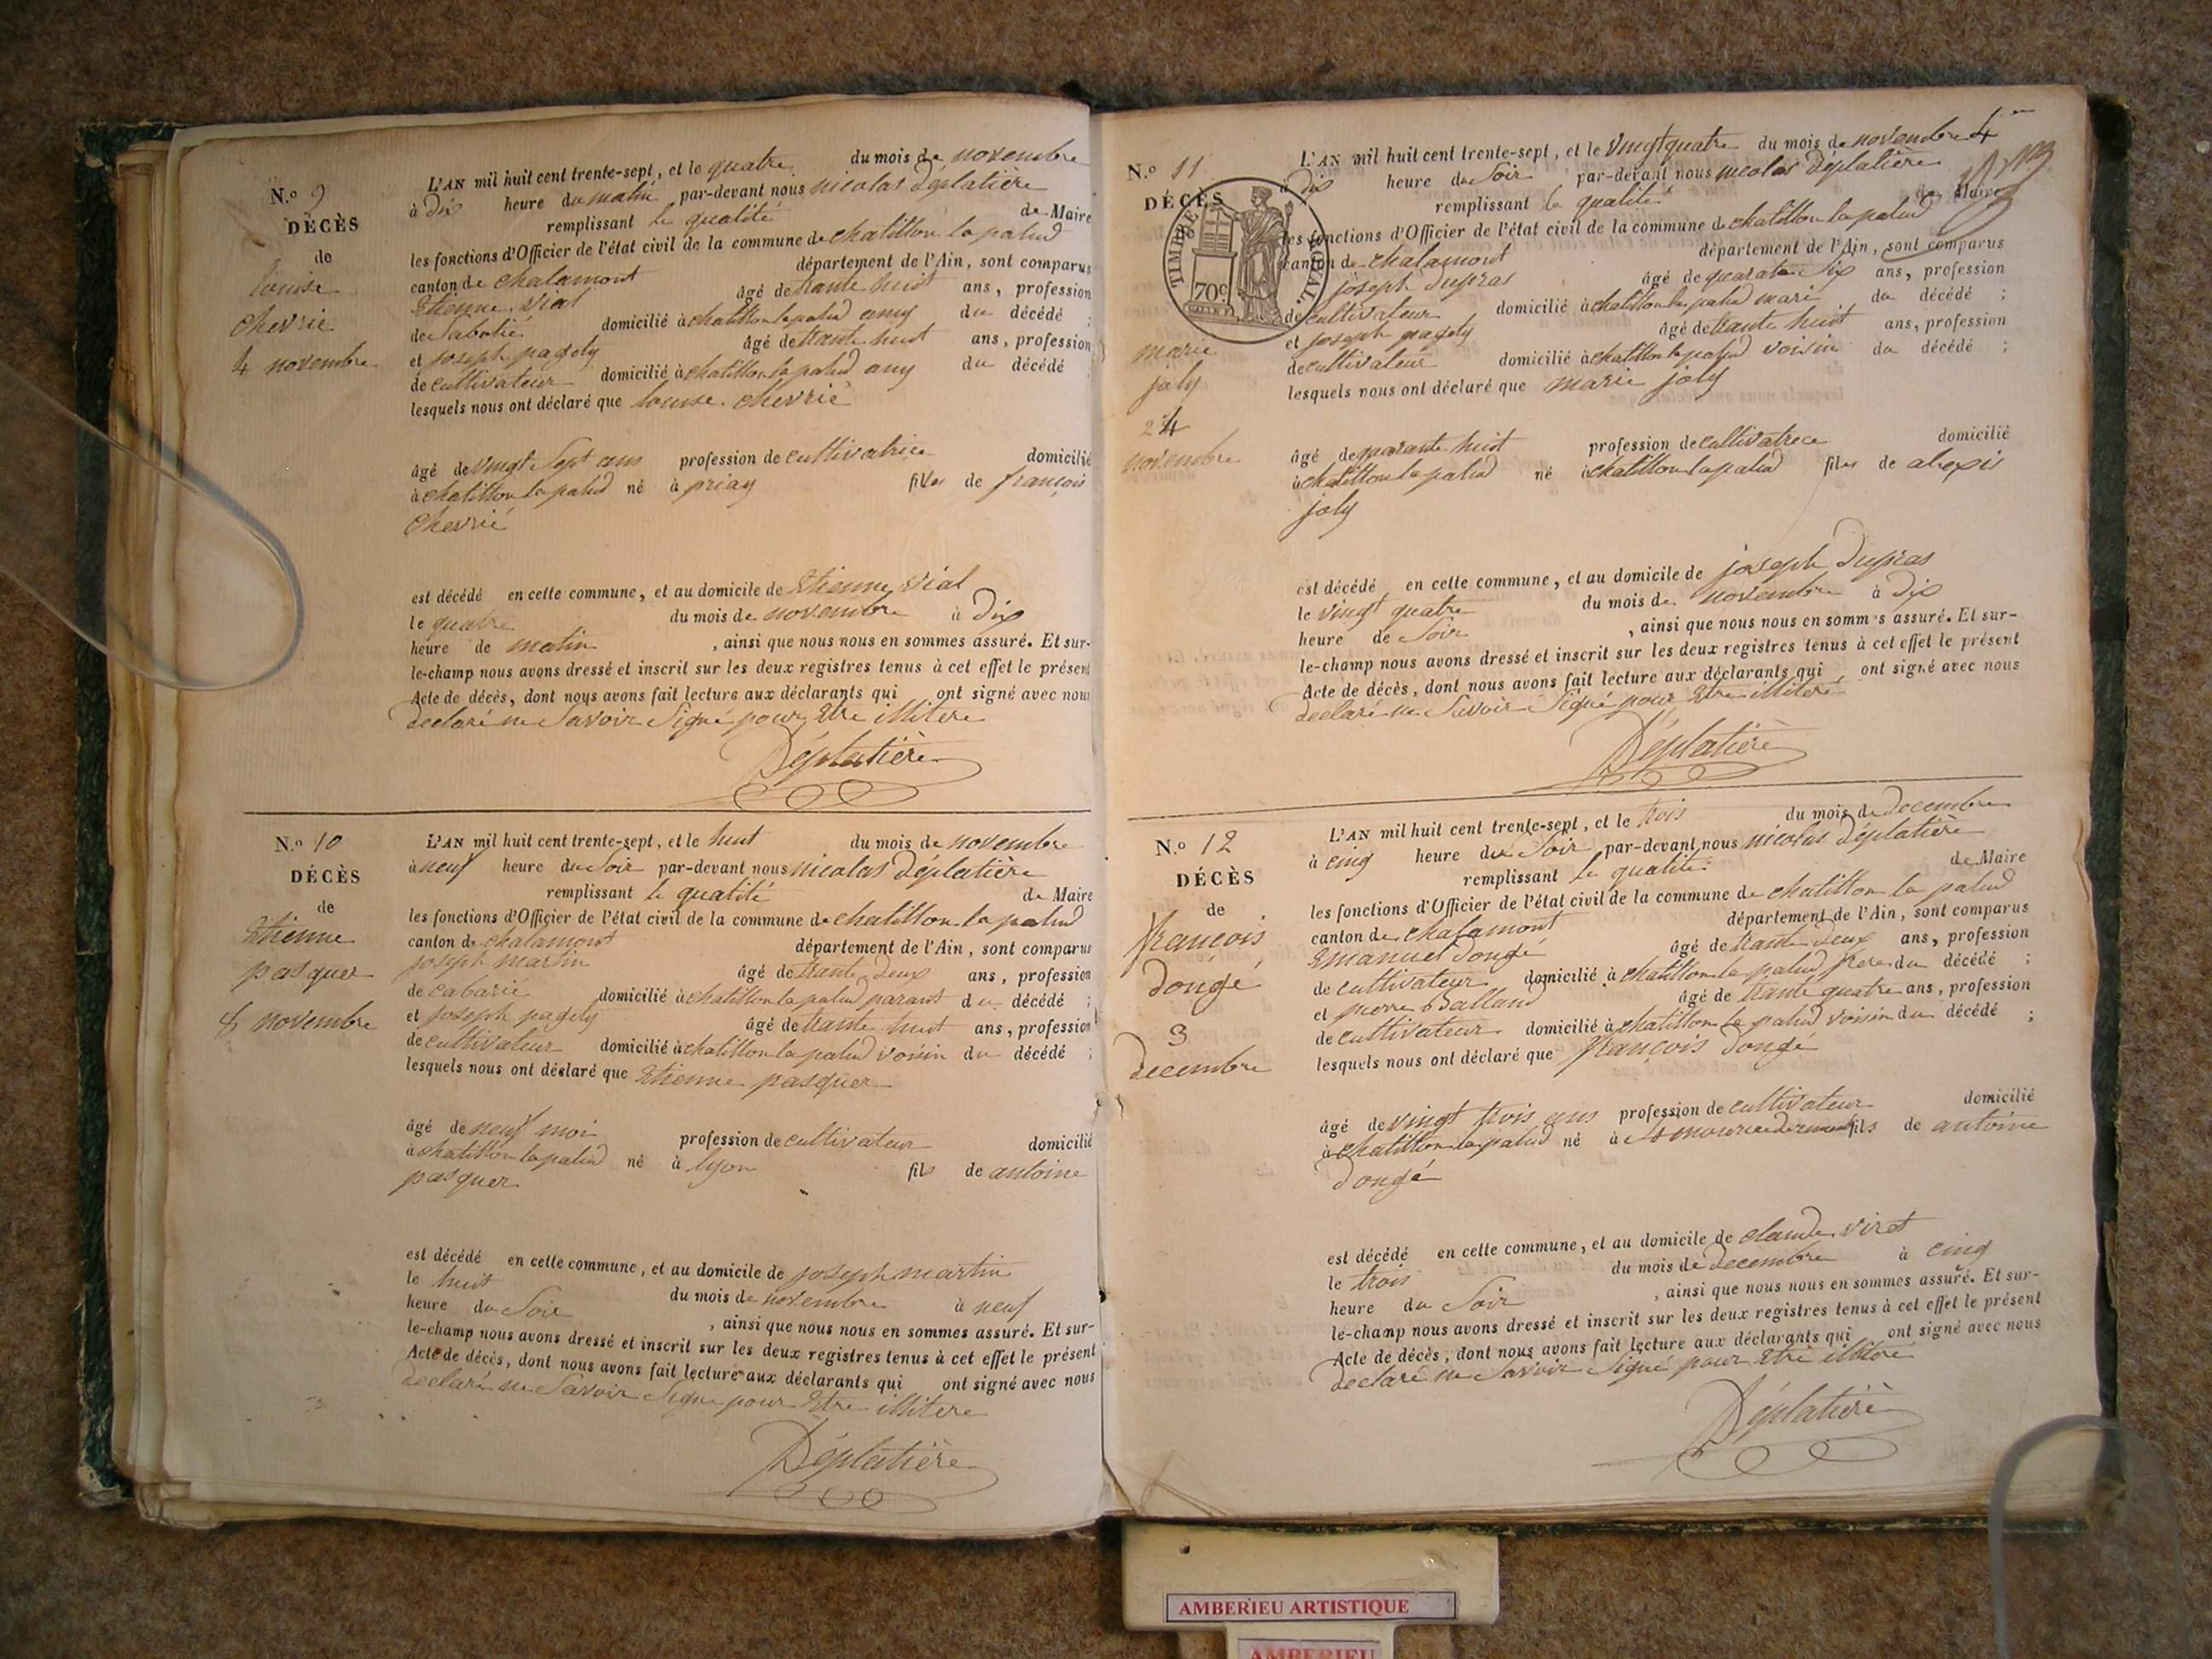 N.º 9
DÉCÈS
de
louise
chevrié
4 novembre
L'AN mil huit cent trente-sept, et le quatre du mois de novembre
à dix heure du matin par-devant nous nicolas Déplatière
remplissant le qualité de Maire
les fonctions d'Officier de l'état civil de la commune de chatillon la palud
canton de chalamont département de l'Ain, sont comparus
Etienne vial âgé de trante huit ans, profession
de sabotié domicilié à chatillon la palud amy du décédé ;
et joseph pagety âgé de trante huit ans, profession
de cultivateur domicilié à chatillon la palud amy du décédé
lesquels nous ont déclaré que louise chevrié
âgé de vingt sept ans profession de cultivatrice domicilié
à chatillon la palud né à priay filles de françois
chevrié
est décédé en cette commune, et au domicile de Etienne vial
le quatre du mois de novembre à dix
heure de matin, ainsi que nous nous en sommes assuré. Et sur-
le-champ nous avons dressé et inscrit sur les deux registres tenus à cet effet le présent
Acte de décès, dont nous avons fait lecture aux déclarants qui ont signé avec nous
declaré ne savoir signé pour Etre illitere
Déplatière
N.º 10
DÉCÈS
de
Etienne
pasquer
8 novembre
L'AN mil huit cent trente-sept, et le huit du mois de novembre
à neuf heure du soir par-devant nous nicolas Déplatière
remplissant le qualité de Maire
les fonctions d'Officier de l'état civil de la commune de chatillon la palud
canton de chalamont département de l'Ain, sont comparus
joseph martin âgé de trante deux ans, profession
de cabarié domicilié à chatillon la palud parant du décédé ;
et joseph pagety âgé de trante huit ans, profession
de cultivateur domicilié à chatillon la palud voisin du décédé ;
lesquels nous ont déclaré que Etienne pasquer
âgé de neuf moi profession de cultivateur domicilié
à chatillon la palud né à lyon fils de antoine
pasquer
est décédé en cette commune, et au domicile de joseph martin
le huit du mois de novembre à neuf
heure du soir, ainsi que nous nous en sommes assuré. Et sur-
le-champ nous avons dressé et inscrit sur les deux registres tenus à cet effet le présent
Acte de décès, dont nous avons fait lecture aux déclarants qui ont signé avec nous
declaré ne savoir signe pour Etre illitere
Déplatière
N.º 11
DÉCÈS
TIMBRE ROYAL.
70c
marie
joly
24
novembre
L'AN mil huit cent trente-sept, et le vingt quatre du mois de novembre 4
à dix heure du soir par-devant nous nicolas Déplatière
remplissant le qualité de Maire
les fonctions d'Officier de l'état civil de la commune de chatillon la palud
canton de chalamont département de l'Ain, sont comparus
joseph Dupras âgé de quarate six ans, profession
de cultivateur domicilié à chatillon la palud mari du décédé ;
et joseph pagety âgé de trante huit ans, profession
de cultivateur domicilié à chatillon la palud voisin du décédé ;
lesquels nous ont déclaré que marie joly
âgé de quarante huit profession de cultivatrece domicilié
à chatillon la palud né à chatillon la palud files de alexis
joly
est décédé en cette commune, et au domicile de joseph Dupras
le vingt quatre du mois de novembre à dix
heure de soir, ainsi que nous nous en sommes assuré. Et sur-
le-champ nous avons dressé et inscrit sur les deux registres tenus à cet effet le présent
Acte de décès, dont nous avons fait lecture aux déclarants qui ont signé avec nous
declaré ne savoir signé pour Etre illiteré
Déplatière
N.º 12
DÉCÈS
de
françois
Dongé
3
decembre
L'AN mil huit cent trente-sept, et le trois du mois de decembre
à cinq heure du soir par-devant nous nicolas Déplatière
remplissant le qualité de Maire
les fonctions d'Officier de l'état civil de la commune de chatillon la palud
canton de chalamont département de l'Ain, sont comparus
Emanuel Dongé âgé de trante deux ans, profession
de cultivateur domicilié à chatillon la palud frere du décédé ;
et pierre Balland âgé de trante quatre ans, profession
de cultivateur domicilié à chatillon la palud voisin du décédé ;
lesquels nous ont déclaré que françois Dongé
âgé de vingt trois ans profession de cultivateur domicilié
à chatillon la palud né à fils de antoine
Dongé
est décédé en cette commune, et au domicile de claude viret
le trois du mois de decembre à cinq
heure du soir, ainsi que nous nous en sommes assuré. Et sur-
le-champ nous avons dressé et inscrit sur les deux registres tenus à cet effet le présent
Acte de décès, dont nous avons fait lecture aux déclarants qui ont signé avec nous
declaré ne savoir signé pour Etre illiteré
Déplatière
AMBERIEU ARTISTIQUE
AMBERIEU